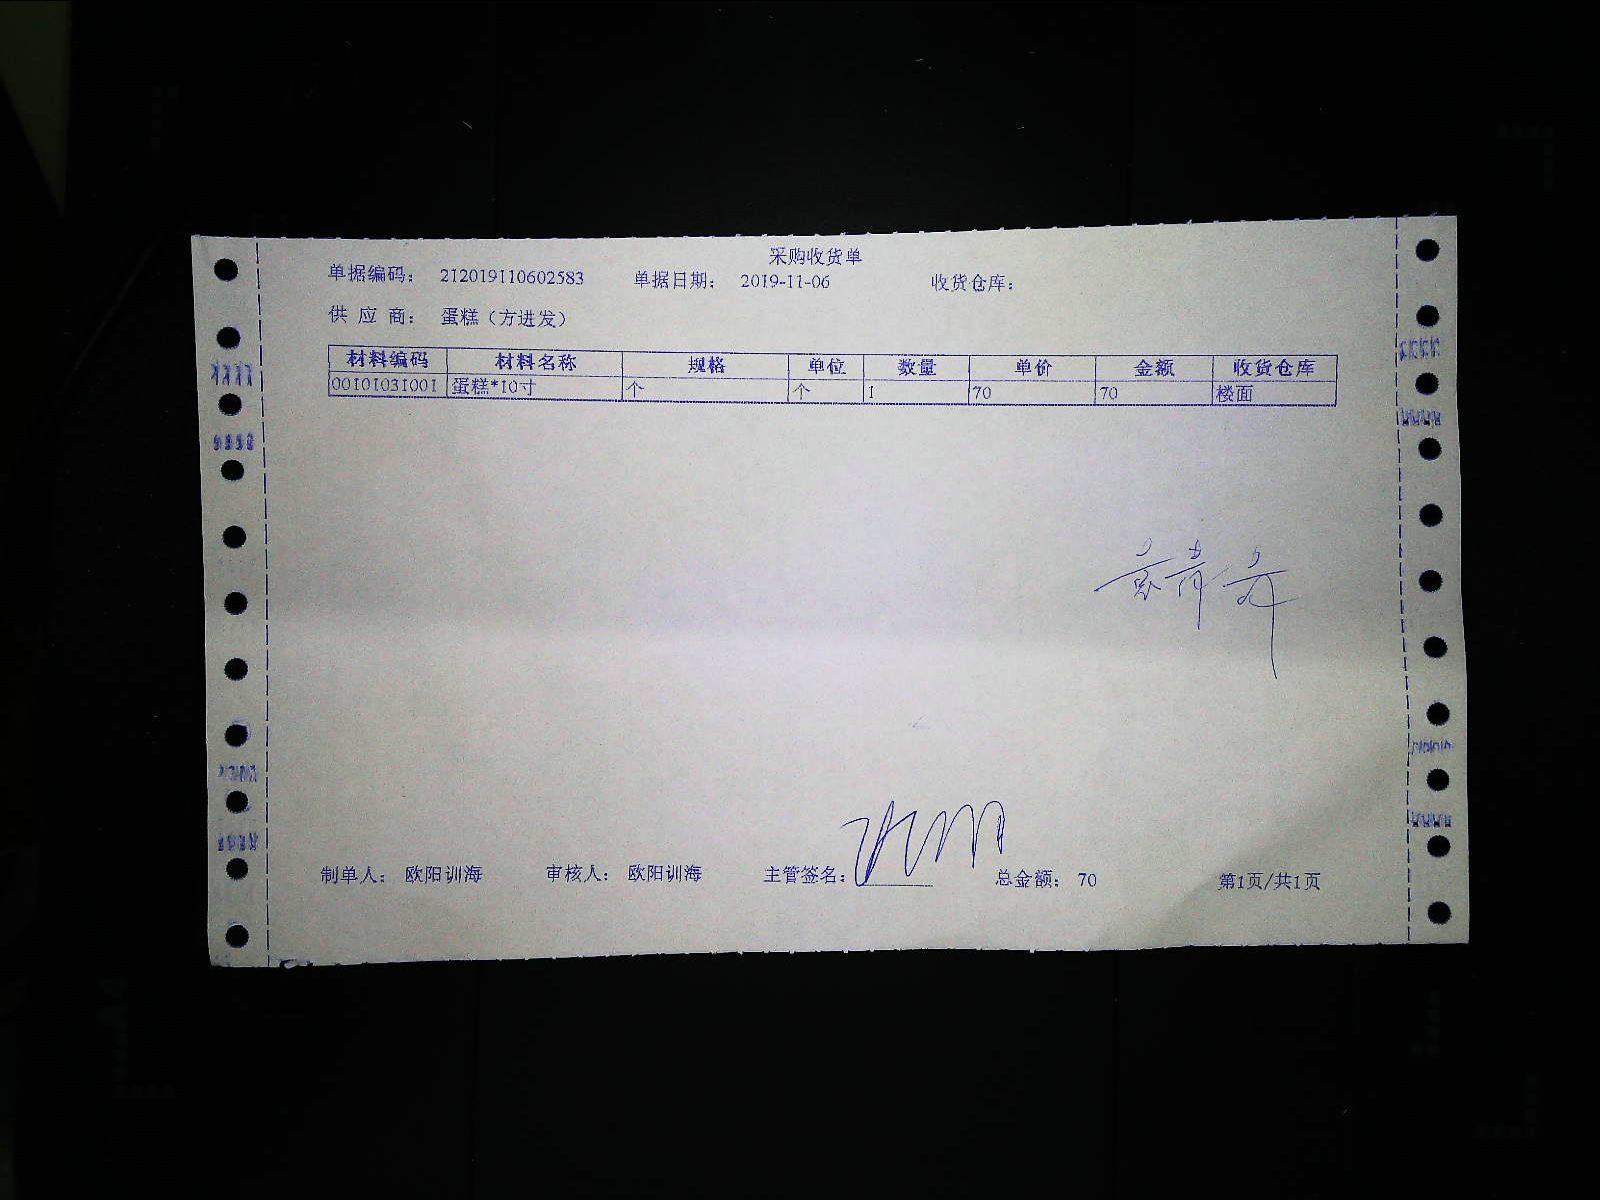 采购收货单
单据编码： 212019110602583 单据日期： 2019-11-06 收货仓库：
供 应 商： 蛋糕（方进发）
材料编码 材料名称 规格 单位 数量 单价 金额 收货仓库
00101031001 蛋糕*10寸 个 个 1 70 70 楼面
制单人： 欧阳训海 审核人： 欧阳训海 主管签名： 总金额： 70 第1页/共1页